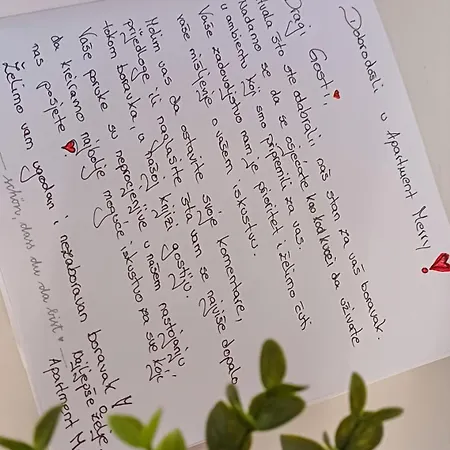 Dobrodošli u Apartment Merry
Dragi Gosti,
Hvala što ste odabrali naš stan za vaš boravak.
Nadamo se da se osjećate kao kod kuće i da uživate
u ambijentu koji smo pripremili za vas.
Vaše zadovoljstvo nam je prioritet i želimo čuti
vaše mišljenje o vašem iskustvu.
Molim vas da ostavite svoje komentare,
prijedloge ili naglasite šta vam se najviše dopalo
tokom boravka, u našoj knjizi gostiju.
Vaše poruke su neprocjenjive u našem nastojanju
da kreiramo najbolje moguće iskustvo za sve koji
nas posjete
Želimo vam ugodan i nezaboravan boravak
Najljepše želje,
Apartment M
schön, dass du da bist